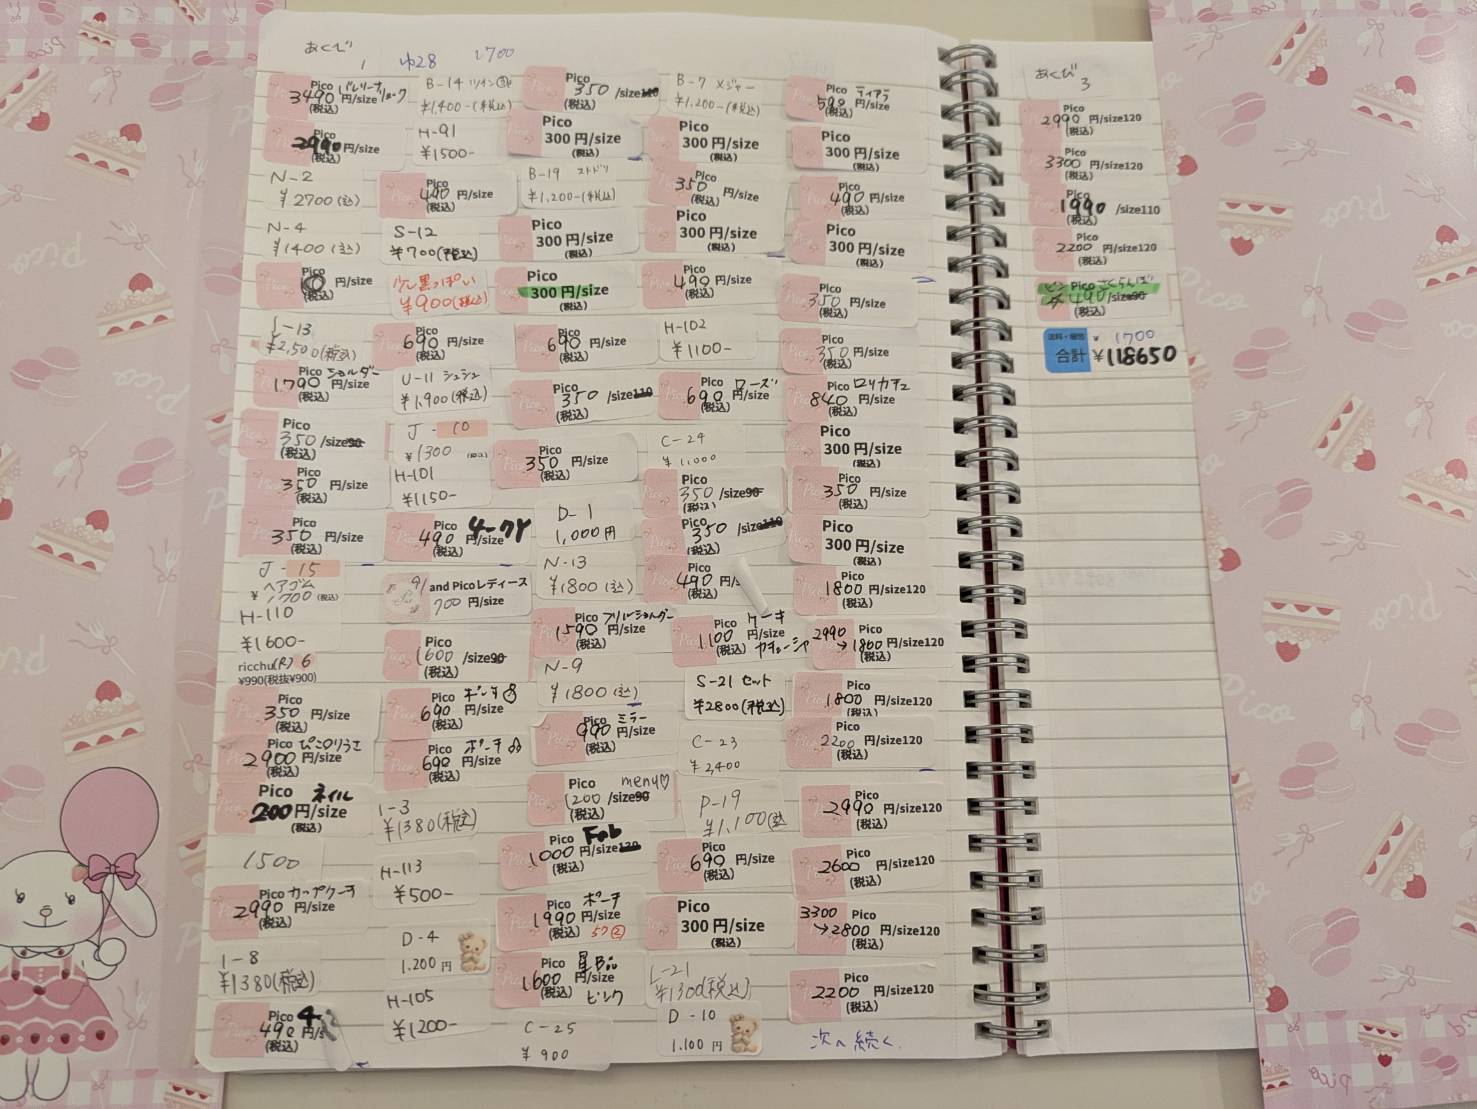 あくび
1
1700
Pico バレリーナ
3490円/size
(税込)
Pico
2990円/size
(税込)
N-2
¥2700(込)
N-4
¥1400(込)
Pico
円/size
(税込)
L-13
¥2,500(税込)
Pico ショルダー
1790円/size
(税込)
Pico
350/size90
(税込)
Pico
350円/size
(税込)
Pico
350円/size
(税込)
J-15
ヘアゴム
¥1700(税込)
H-110
¥1600-
ricchu(R) 6
¥990(税抜¥900)
Pico
350円/size
(税込)
Pico ぴこのりうさ
2900円/size
(税込)
Pico ネイル
200円/size
(税込)
1500
Pico カップケーキ
2990円/size
(税込)
I-8
¥1380(税込)
Pico
490円/s
(税込)
B-14
¥1,400-(税込)
H-91
¥1500-
Pico
490円/size
(税込)
S-12
¥700(税込)
少し黒っぽい
¥900(税込)
Pico
690円/size
(税込)
U-11 シュシュ
¥1,900(税込)
J-10
¥1300 (税込)
H-101
¥1150-
Pico
490円/size
(税込)
and Picoレディース
700円/size
Pico
1600/size90
(税込)
Pico ポーチ
690円/size
(税込)
Pico ポーチ
690円/size
(税込)
I-3
¥1380(税込)
H-113
¥500-
D-4
1.200円
H-105
¥1200-
Pico
350/size110
(税込)
Pico
300円/size
(税込)
B-19
¥1,200-(税込)
Pico
300円/size
(税込)
Pico
300円/size
(税込)
Pico
690円/size
(税込)
Pico
350/size110
(税込)
Pico
350円/size
(税込)
D-1
1,000円
N-13
¥1800(込)
Pico フリルショルダー
1590円/size
(税込)
N-9
¥1800(込)
Pico ミラー
990円/size
(税込)
Pico menu♡
1200/size90
(税込)
Pico Fab
1000円/size120
(税込)
Pico ポーチ
1990円/size
(税込)
Pico
1600円/size
(税込) ピンク
C-25
¥900
B-7 メジャー
¥1,200-(税込)
Pico
300円/size
(税込)
Pico
350円/size
(税込)
Pico
300円/size
(税込)
Pico
490円/size
(税込)
H-102
¥1100-
Pico ローズ
690円/size
(税込)
C-24
¥1,000
Pico
350/size90
(税込)
Pico
350/size110
(税込)
Pico
490円/s
(税込)
Pico ケーキ
1100円/size
(税込) カチューシャ
S-21 セット
¥2800(税込)
C-23
¥2,400
P-19
¥1,100(込
Pico
690円/size
(税込)
Pico
300円/size
(税込)
L-21
¥1300(税込)
D-10
1.100円
Pico ティアラ
590円/size
(税込)
Pico
300円/size
(税込)
Pico
490円/size
(税込)
Pico
300円/size
(税込)
Pico
350円/size
(税込)
Pico
350円/size
(税込)
Pico ロリカチュ
840円/size
(税込)
Pico
300円/size
(税込)
Pico
350円/size
(税込)
Pico
300円/size
(税込)
Pico
1800円/size120
(税込)
2990 Pico
→1800円/size120
(税込)
Pico
1800円/size120
(税込)
Pico
2200円/size120
(税込)
Pico
2990円/size120
(税込)
Pico
2600円/size120
(税込)
3300 Pico
→2800円/size120
(税込)
Pico
2200円/size120
(税込)
次へ続く
あくび
3
Pico
2990円/size120
(税込)
Pico
3300円/size120
(税込)
Pico
1990/size110
(税込)
Pico
2200円/size120
(税込)
ピンPicoさくらんぼ
490/size90
(税込)
¥1700
合計 ¥118650